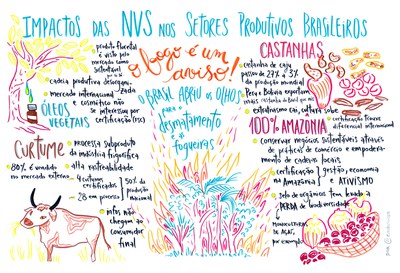 IMPACTOS DAS NVS NOS SETORES PRODUTIVOS BRASILEIROS
produto florestal
é visto pelo
mercado como
sustentável
cadeia produtiva desorgani-
zada
mercado internacional
e cosmético não
se interessa por
certificação (FSC)
ÓLEOS
VEGETAIS
CURTUME
processa subproduto
da indústria frigorífica
80% é vendido
no mercado externo
alta rastreabilidade
4 curtumes
certificados
28 em processo
50% da
produção
nacional
infos não
chegam ao
consumidor
final
O fogo é um
aviso!
O BRASIL ABRIU OS OLHOS
para o
desmatamento
+
fogueiras
CASTANHAS
castanha de caju
passou de 27% à 3%
da produção mundial
Peru e Bolívia exportam
mais castanha do Brasil que nós
extrativismo cai, cultura sobe
certificação
diferencial internacional
100% AMAZONIA
conservar negócios sustentáveis através
de práticas de comércio e empoder-
amento de cadeias locais
certificação
na Amazônia
gestão, economia
e ATIVISMO
selo de orgânicos tem levado à
PERDA de biodiversidade
MONOCULTURAS
DE AÇAÍ,
por exemplo